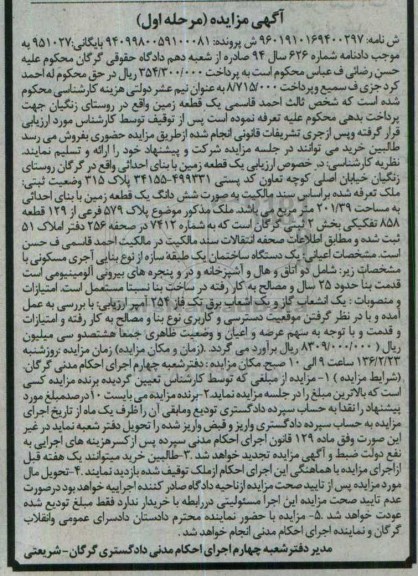 آگهی مزایده (مرحله اول)
ش نامه: ۹۶۰۱۹۱۰۱۶۹۴۰۰۲۹۷ ش پرونده: ۹۴۰۹۹۸۰۰۵۹۱۰۰۰۸۱ بایگانی: ۹۵۱۰۲۷ به
موجب دادنامه شماره ۶۲۶ سال ۹۴ صادره از شعبه دهم دادگاه حقوقی گرگان محکوم علیه
حسن رضائی ف عباس محکوم است به پرداخت ۳۵۴/۳۰۰/۰۰۰ ریال در حق محکوم له احمد
کرد جزی ف سمیع وپرداخت ۸/۷۱۵/۰۰۰ به عنوان نیم عشر دولتی هزینه کارشناسی محکوم
شده است که شخص ثالث احمد قاسمی یک قطعه زمین واقع در روستای زنگیان جهت
پرداخت بدهی محکوم علیه تعرفه نموده است پس از توقیف توسط کارشناس مورد ارزیابی
قرار گرفته وپس ازجری تشریفات قانونی انجام شده ازطریق مزایده حضوری بفروش می رسد
طالبین خرید می توانند در جلسه مزایده شرکت و پیشنهاد خود را ارائه و تسلیم نمایند.
نظریه کارشناسی: در خصوص ارزیابی یک قطعه زمین با بنای احداثی واقع در گرگان روستای
زنگیان خیابان اصلی کوچه تعاون کد پستی ۴۹۹۳۳۱-۳۴۱۵۵ پلاک ۳۱۵ وضعیت ثبتی:
ملک تعرفه شده براساس سند مالکیت به صورت شش دانگ یک قطعه زمین با بنای احداثی
به مساحت ۲۰۱/۳۹ متر مربع می باشد. ملک مذکور موضوع پلاک ۵۷۹ فرعی از ۱۲۹ قطعه
۸۵۸ تفکیکی بخش ۲ ثبتی گرگان است که به شماره ۷۴۱۲ در صفحه ۲۵۶ دفتر املاک ۵۱
ثبت شده و مطابق اطلاعات صفحه انتقالات سند مالکیت در مالکیت احمد قاسمی ف حسن
است. مشخصات اعیانی یک دستگاه ساختمان یک طبقه سازه از نوع بنایی آجری مسکونی با
مشخصات زیر: شامل دو اتاق و هال و آشپزخانه و در و پنجره های بیرونی آلومینیومی است
قدمت بنا حدود ۲۵ سال و مصالح به کار رفته در ساخت بنا نسبتا مستعمل است. امتیازات
و منصوبات : یک انشعاب گاز و یک اشعاب برق تک فاز ۲۵۴ آمپر ارزیابی: با بررسی به عمل
آمده و با در نظر گرفتن موقعیت دسترسی و کاربری نوع بنا و مصالح به کار رفته و امتیازات
و قدمت و با توجه به سهم عرصه و اعیان و وضعیت ظاهری جمعاً هشتصدو سی میلیون
ریال ( ۸۳۰۹/۰۰۰/۰۰۰ ریال برآورد می گردد. (زمان و مکان مزایده) زمان مزایده :روزشنبه
۱۳۶/۲/۲۳ ساعت ۹ الی ۱۰ صبح مکان مزایده : دفترشعبه چهارم اجرای احکام مدنی گرگان
(شرایط مزایده ) ۱- مزایده از مبلغی که توسط کارشناس تعیین گردیده برنده مزایده کسی
است که بالاترین مبلغ را در جلسه مزایده نماید.۲-برنده مزایده می بایست ۱۰ درصدمبلغ مورد
پیشنهاد را نقدا به حساب سپرده دادگستری تودیع ومابقی آن را ظرف یک ماه از تاریخ اجرای
مزایده به حساب سپرده دادگستری واریز و قبض واریز شده را تحویل دفتر شعبه نماید در غیر
این صورت وفق ماده ۱۲۹ قانون اجرای احکام مدنی سپرده پس از کسرهزینه های اجرایی به
نفع دولت ضبط و آگهی مزایده تجدید خواهد شد .۳-طالبین خرید میتوانند یک هفته قبل
ازاجرای مزایده با هماهنگی این اجرای احکام ازملک توقیف شده بازدید نمایند.۴-تحویل مال
مورد مزایده پس از تایید صحت مزایده ازناحیه دادگاه صادر کننده اجراییه خواهد بود درصورت
عدم تایید صحت مزایده این اجرا مسئولیتی دررابطه با خریدار ندارد فقط مبلغ تودیع شده
عودت خواهد شد .۵- مزایده با حضور نماینده محترم دادستان دادسرای عمومی وانقلاب
گرگان و نماینده اجرای احکام مدنی انجام خواهد شد.
مدیر دفتر شعبه چهارم اجرای احکام مدنی دادگستری گرگان - شریعتی